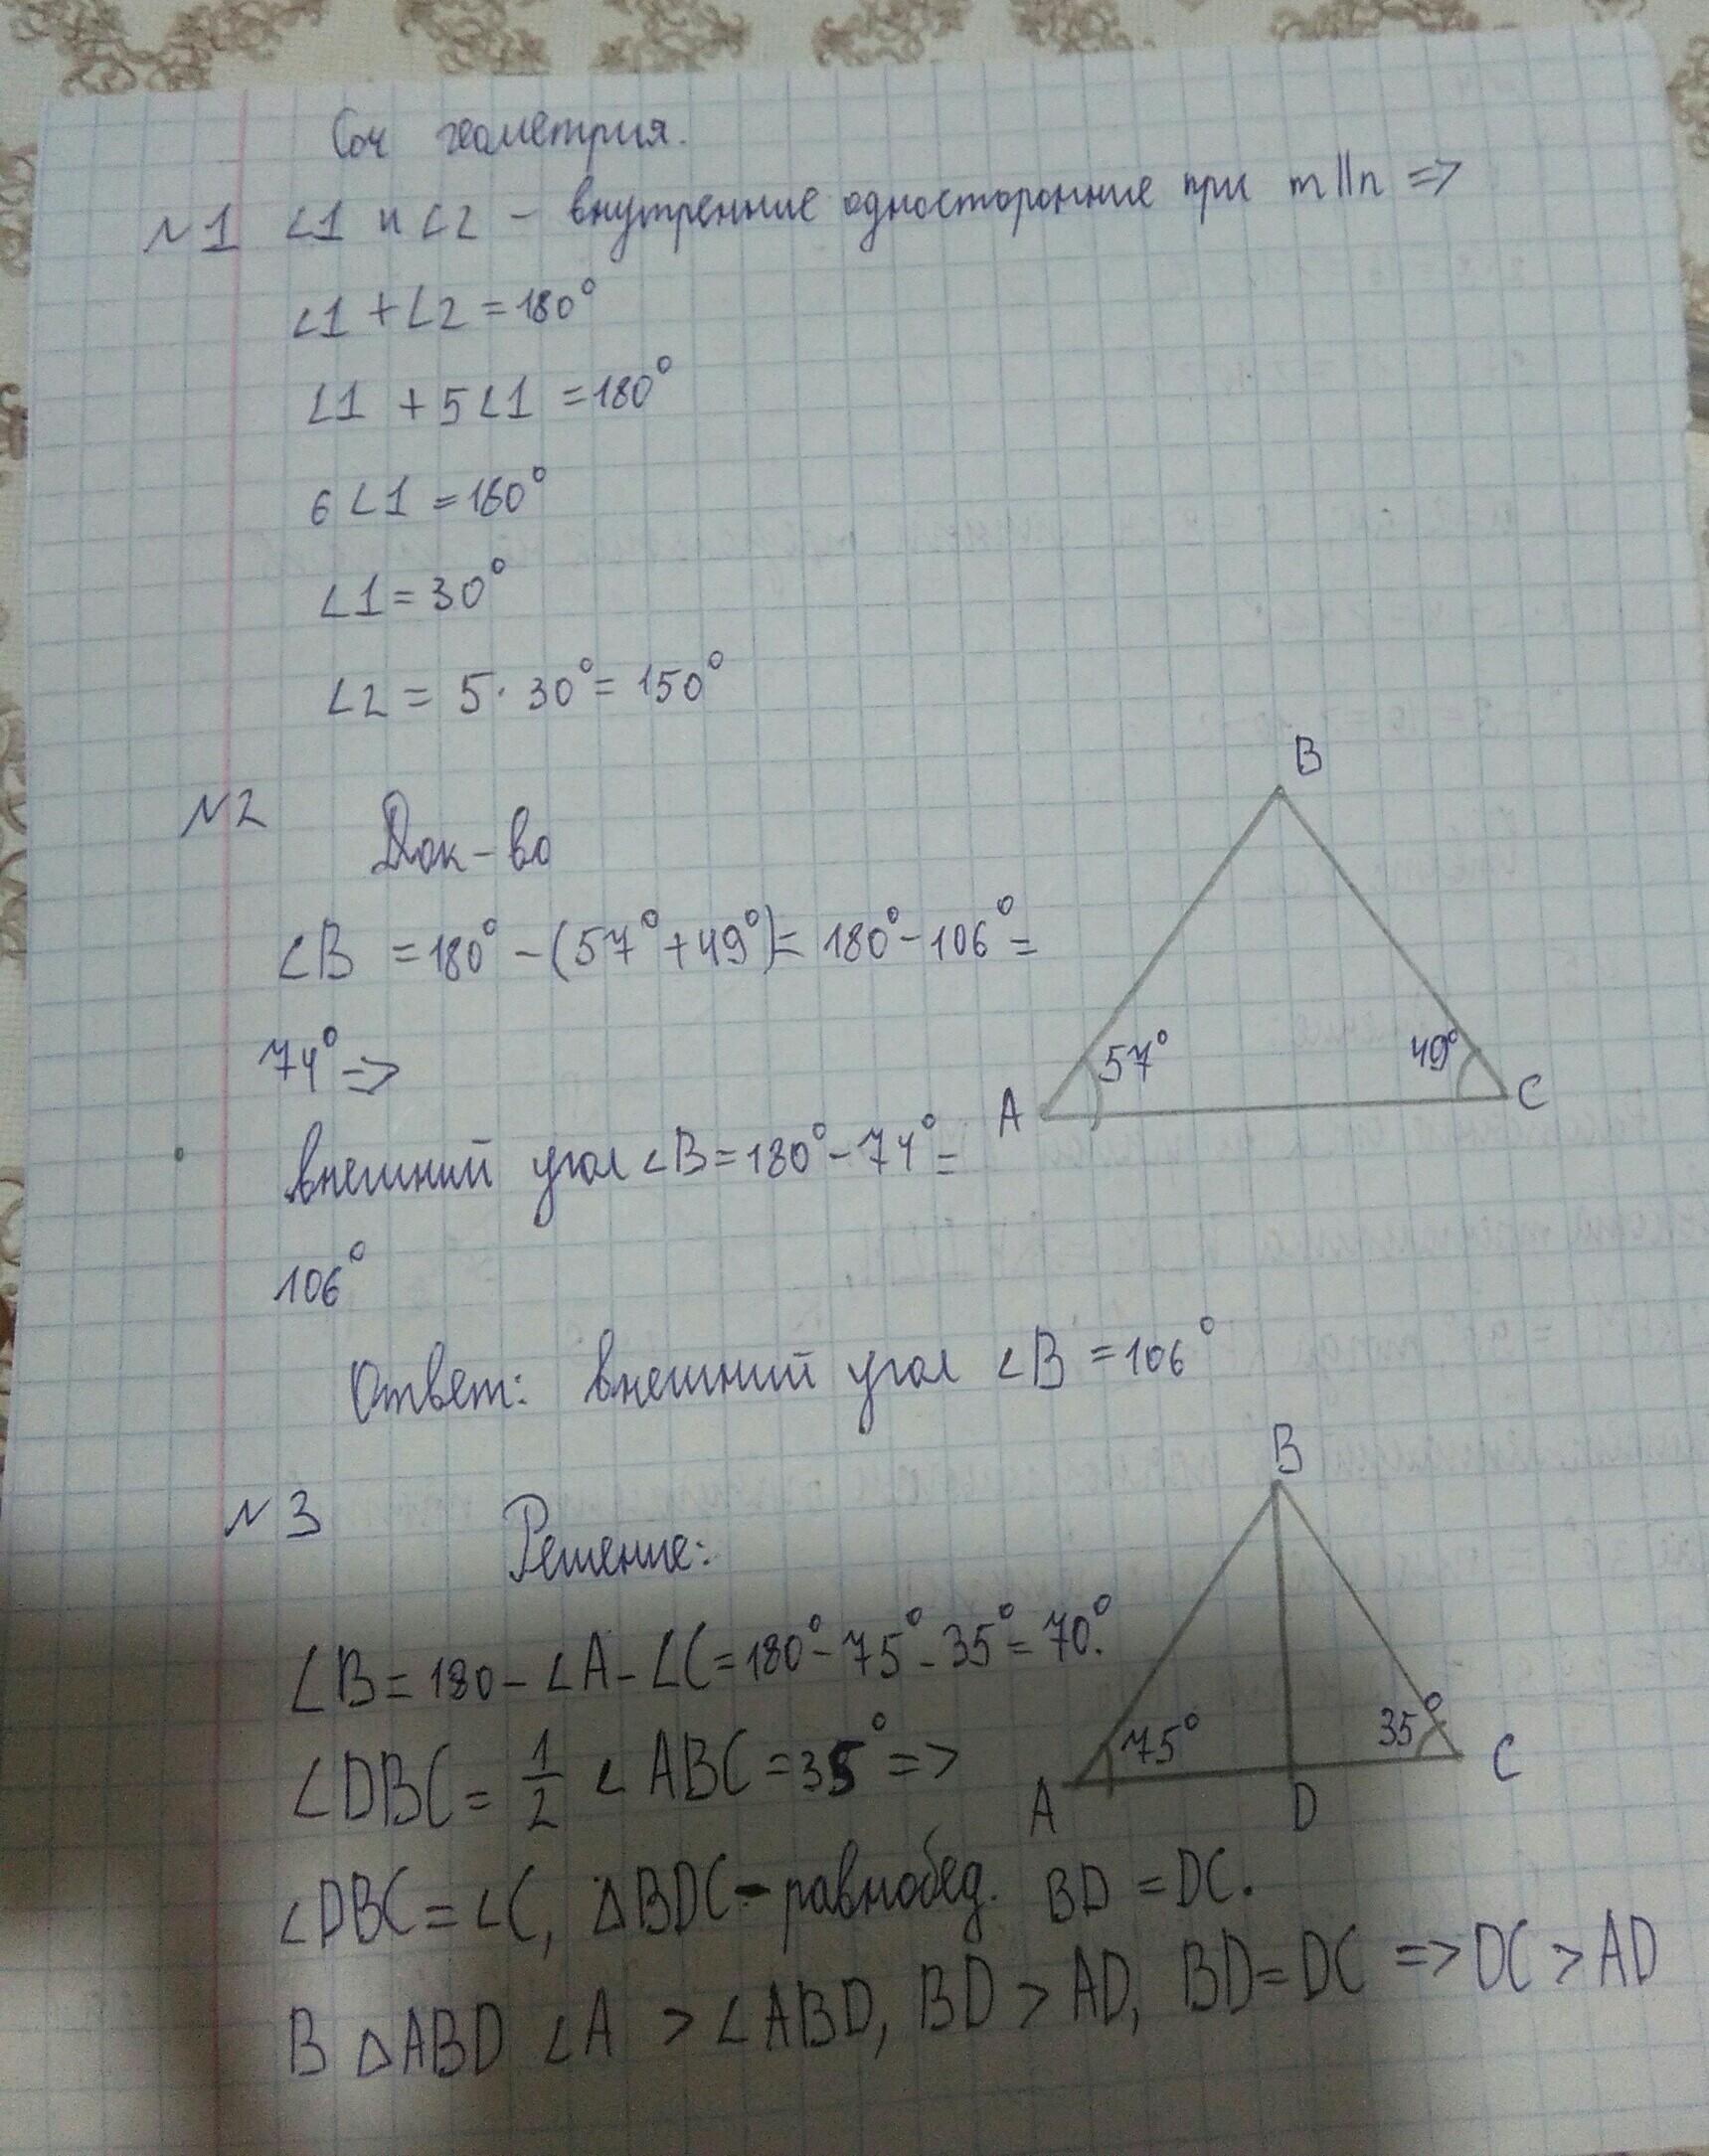 Соч геометрия.
№1 ∠1 и ∠2 – внутренние односторонние при m||n =>
∠1 + ∠2 = 180°
∠1 + 5∠1 = 180°
6∠1 = 180°
∠1 = 30°
∠2 = 5·30° = 150°
№2 Док-во
∠B = 180° – (57° + 49°) = 180° – 106° =
74° =>
внешний угол ∠B = 180° – 74° =
106°
Ответ: внешний угол ∠B = 106°
B
57°
49°
A
C
№3 Решение:
∠B = 180 – ∠A – ∠C = 180° – 75° – 35° = 70°.
∠DBC = 1/2 ∠ABC = 35° =>
∠DBC = ∠C, △BDC – равнобед. BD = DC.
В △ABD ∠A > ∠ABD, BD > AD, BD = DC => DC > AD
B
75°
35°
A
D
C